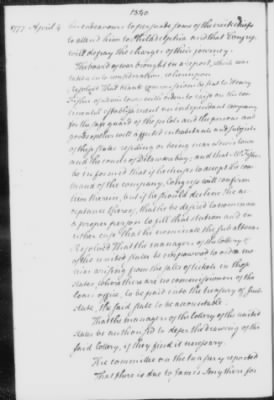 1777 April 4
endeavour to persuade some of the
to attend him to Philadelphia and that Congress
will defray the charges of their journey.
The board of war brought in a report, which was
taken into consideration; whereupon
Resolved That blank commissions be sent to
to
an independent company
for the safe guard of the and the persons and
properties of the well affected inhabitants and subjects
of these states residing or being near
and the and that
be informed that if he chuses to accept the com
mand of the company, Congress will confirm
him therein, but if he should decline the ac
ceptance thereof, that he be desired to nominate
a proper person to fill that station and in
either case that he nominate the subalterns.
Resolved That the managers of the lottery of
of the united states be empowered to order mo
nies arising from the sales of tickets in those
states, where there are no commissioners of the
loan office, to be paid into the treasury of such
state, the said state to be accountable.
That the managers of the lottery of the united
states be authorised to defer the drawing of the
said lottery, if they find it necessary.
The committee on the treasury reported
That there is due to James for